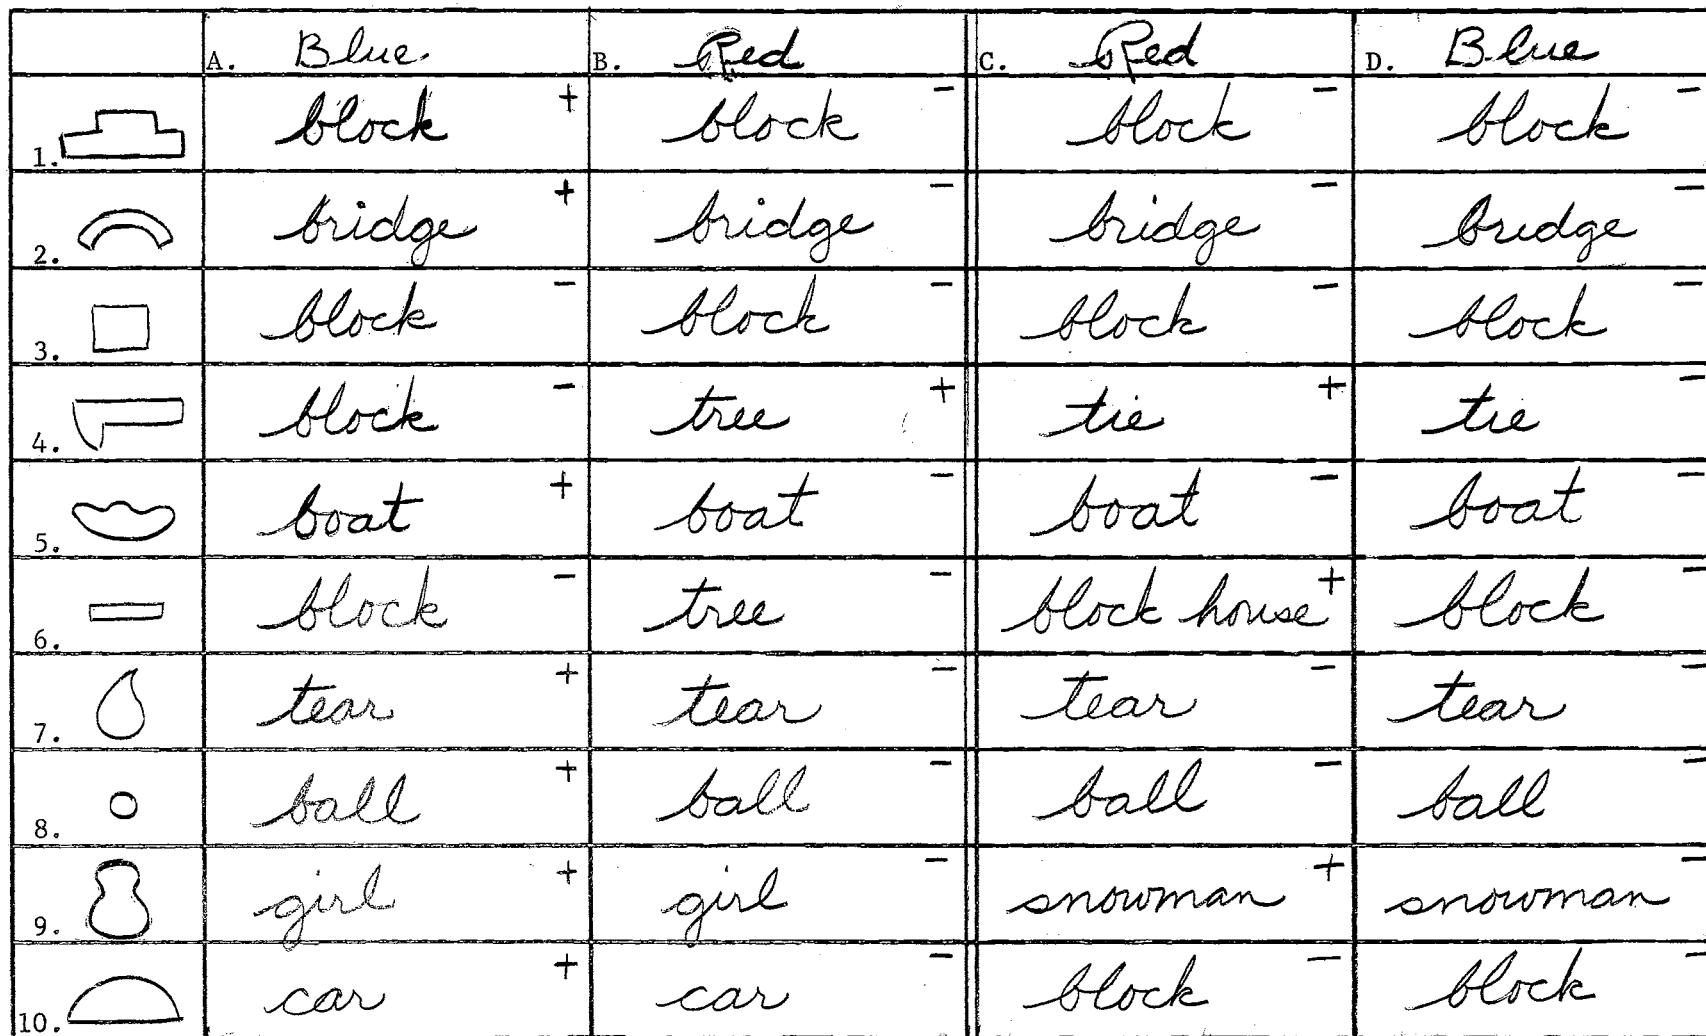 A. Blue B. Red C. Red D. Blue
1. block + block − block − block −
2. bridge + bridge − bridge − bridge −
3. block − block − block − block −
4. block − tree + tie + tie −
5. boat + boat − boat − boat −
6. block − tree − block house + block −
7. tear + tear − tear − tear −
8. ball + ball − ball − ball −
9. girl + girl − snowman + snowman −
10. car + car − block − block −